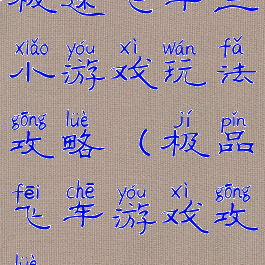 极速飞车三
xiǎo yóu xì wán fǎ
小游戏玩法
gōng lüè ( jí pǐn
攻略（极品
fēi chē yóu xì gōng
飞车游戏攻
lüè